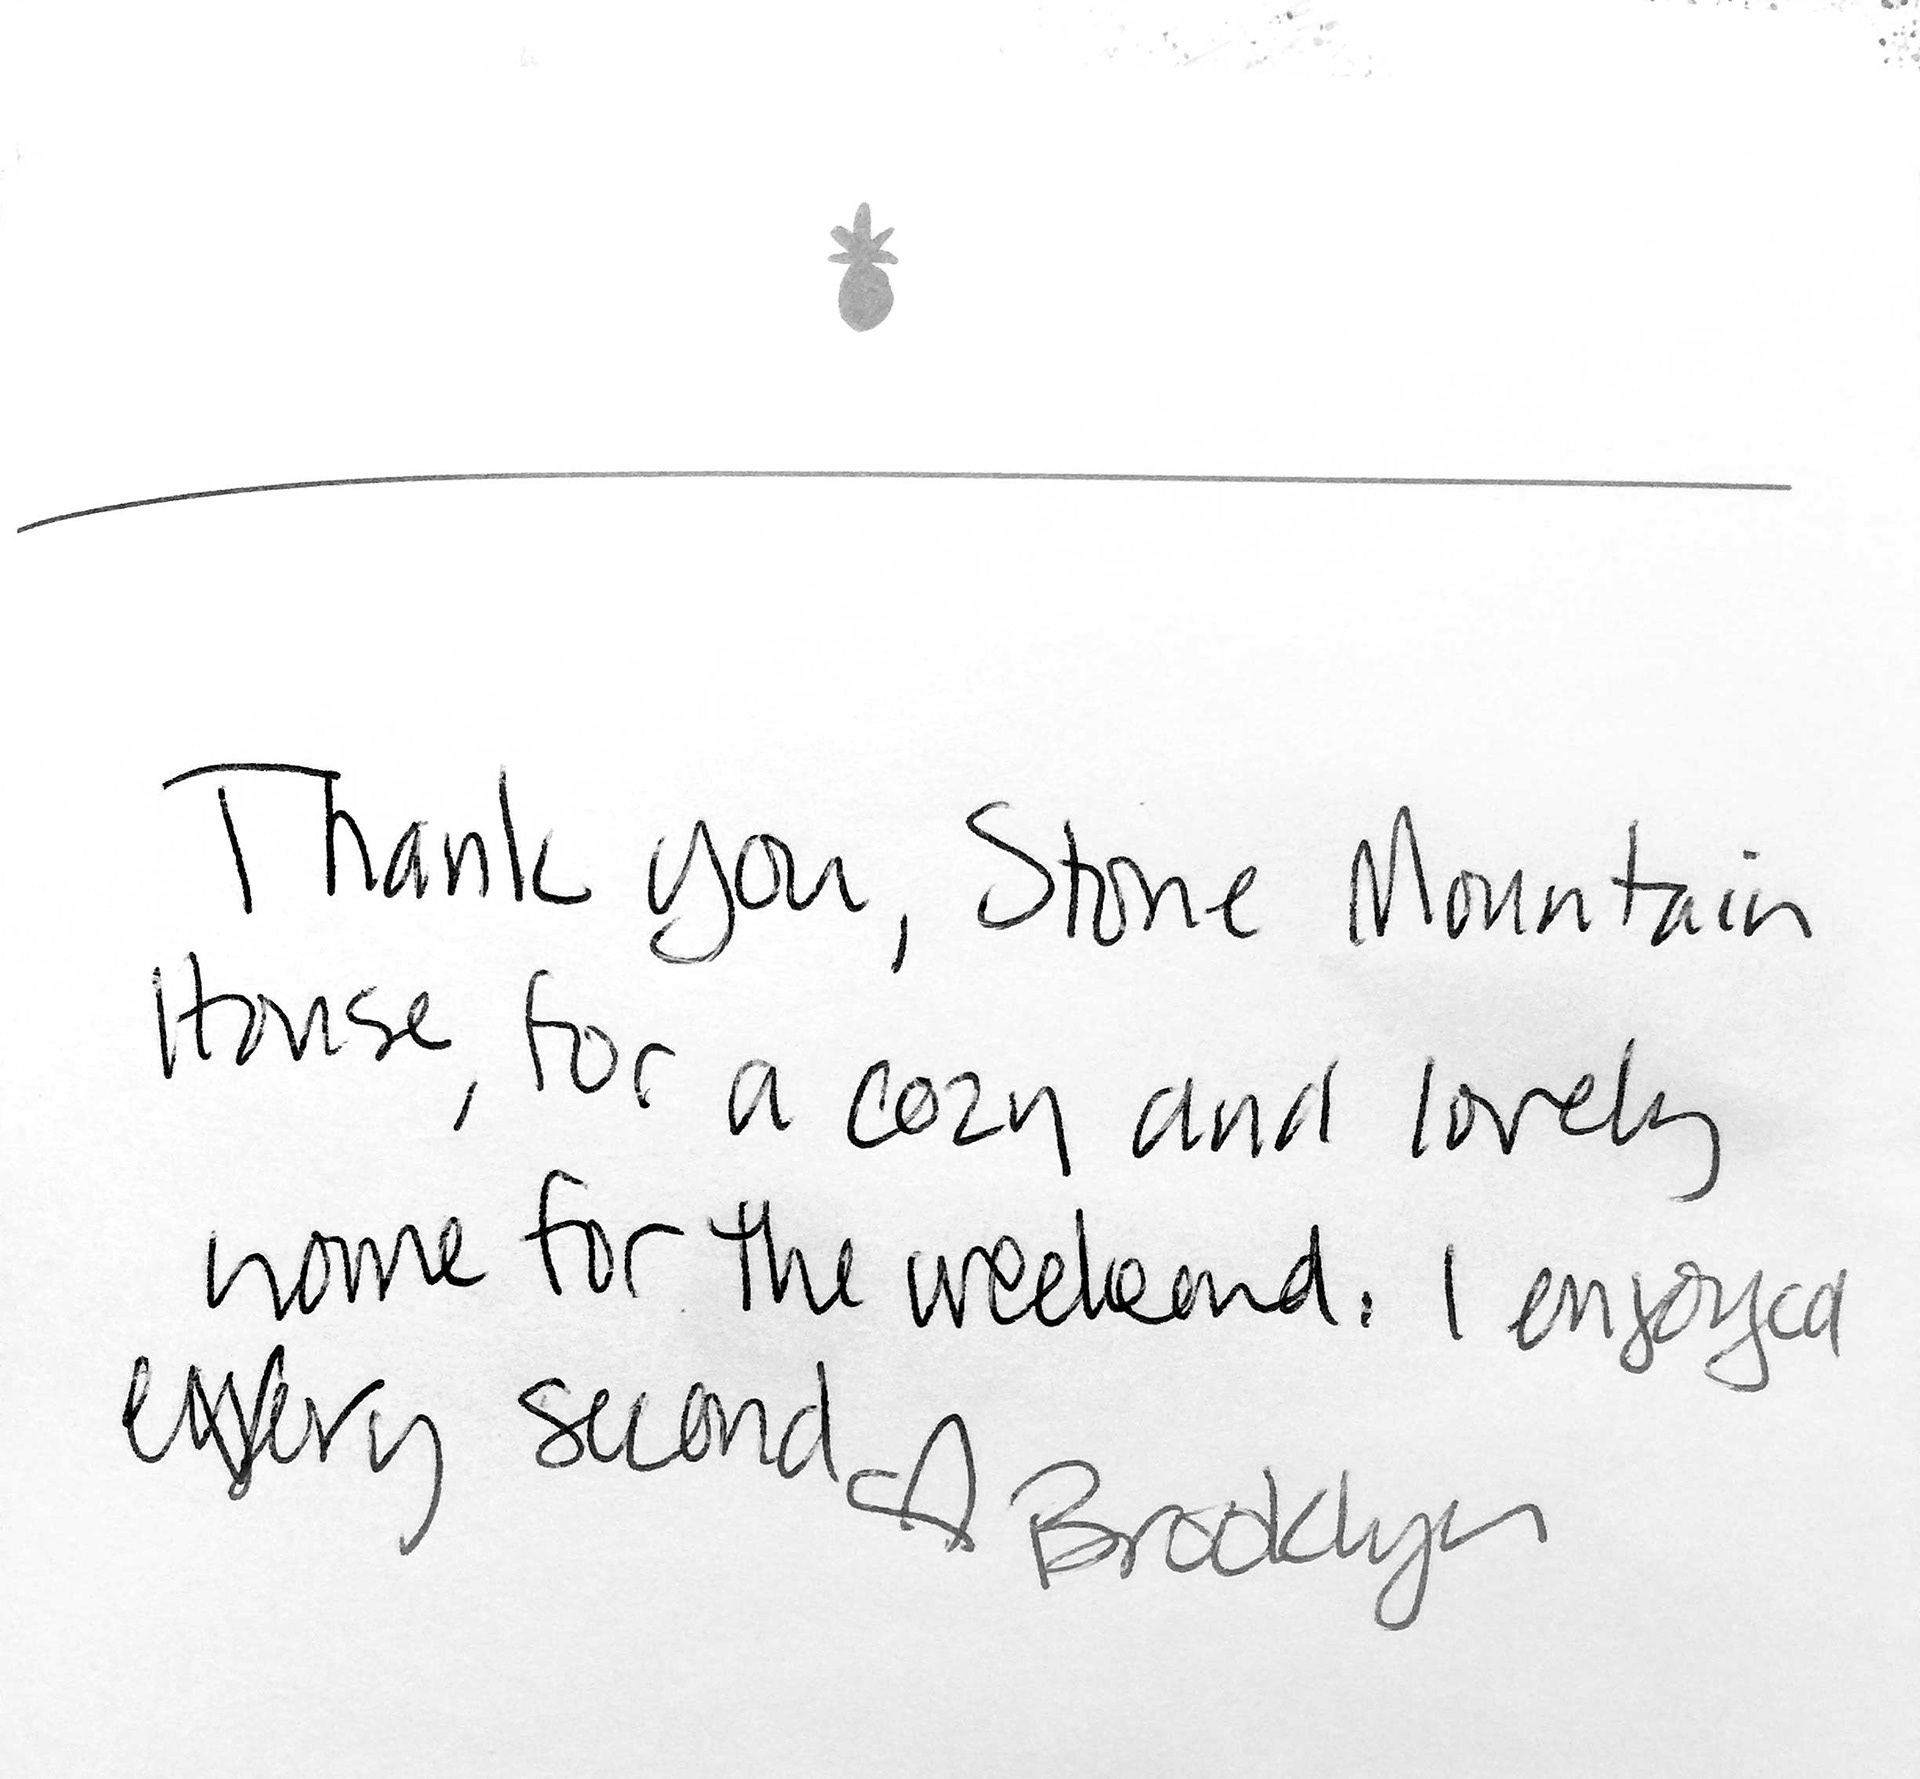 Thank you, Stone Mountain
House, for a cozy and lovely
home for the weekend. I enjoyed
every second ♡ Brooklyn